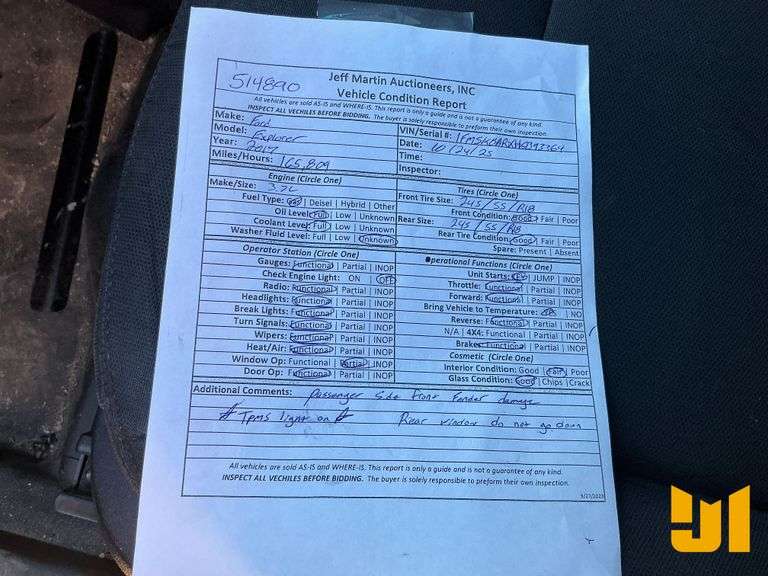 514890
Jeff Martin Auctioneers, INC
Vehicle Condition Report
All vehicles are sold AS-IS and WHERE-IS. This report is only a guide and is not a guarantee of any kind.
INSPECT ALL VECHILES BEFORE BIDDING. The buyer is solely responsible to preform their own inspection.
Make: Ford
Model: Explorer
Year: 2017
Miles/Hours: 165,809
VIN/Serial #:
Date: 10/24/25
Time:
Inspector:
Engine (Circle One)
Make/Size:
Fuel Type: Gas | Deisel | Hybrid | Other
Oil Level: Full | Low | Unknown
Coolant Level: Full | Low | Unknown
Washer Fluid Level: Full | Low | Unknown
Tires (Circle One)
Front Tire Size: 245/55/R18
Front Condition: Good | Fair | Poor
Rear Size: 245/55/R18
Rear Tire Condition: Good | Fair | Poor
Spare: Present | Absent
Operator Station (Circle One)
Gauges: Functional | Partial | INOP
Check Engine Light: ON OFF
Radio: Functional | Partial | INOP
Headlights: Functional | Partial | INOP
Break Lights: Functional | Partial | INOP
Turn Signals: Functional | Partial | INOP
Wipers: Functional | Partial | INOP
Heat/Air: Functional | Partial | INOP
Window Op: Functional | Partial | INOP
Door Op: Functional | Partial | INOP
Operational Functions (Circle One)
Unit Starts: KEY | JUMP | INOP
Throttle: Functional | Partial | INOP
Forward: Functional | Partial | INOP
Bring Vehicle to Temperature: YES | NO
Reverse: Functional | Partial | INOP
N/A | 4X4: Functional | Partial | INOP
Brakes: Functional | Partial | INOP
Cosmetic (Circle One)
Interior Condition: Good | Fair | Poor
Glass Condition: Good | Chips | Crack
Additional Comments: Passenger Side front Fender damage
# Tpms light on # Rear window do not go down
All vehicles are sold AS-IS and WHERE-IS. This report is only a guide and is not a guarantee of any kind.
INSPECT ALL VECHILES BEFORE BIDDING. The buyer is solely responsible to preform their own inspection.
9/27/2023